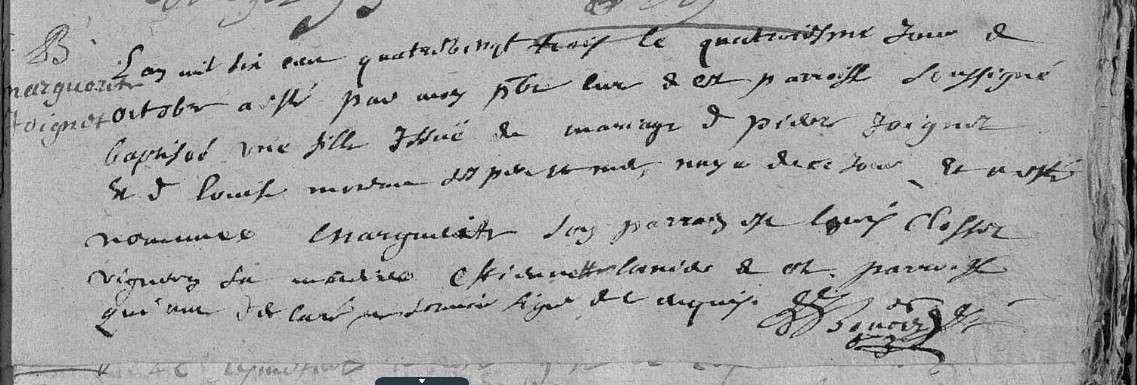 B
marguerite
Joignet
L'an mil six cen quatrevingt trois le quatriesme Jour de
octobre a esté par moy pbre curé de cet parroisse soussigné
baptisée une fille Issuë du mariage de pierre Joignet
et de Louise moreau ses pere et mere, naye de ce Jour et a esté
nommee Marguerite son parrain est Louis Closset
vigneron sa marraine Estiennette de cet parroisse
qui ont declaré ne scavoir signé de ce requis